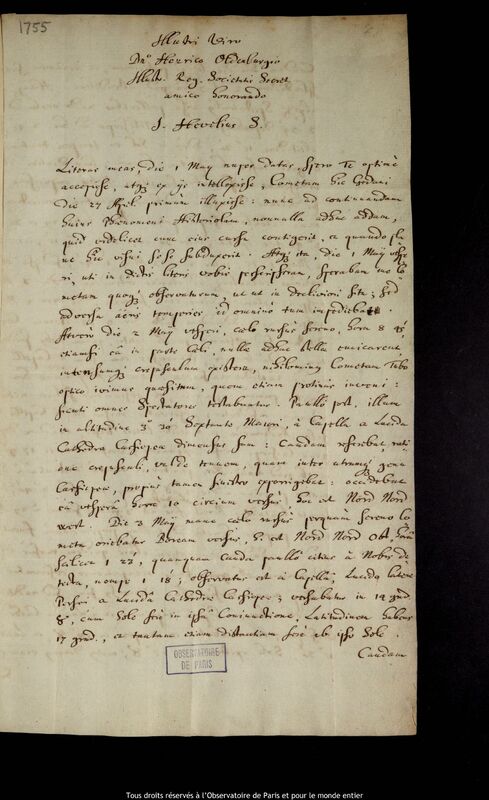 1755
Illustri Viro
Dno Henrico Oldenburgio
Illustr. Reg. Societatis Secret
amico honorando
J. Hevelius S.
Literas meas, die 1 Maij nuper datas, spero Te optime
accepisse, atq; ex ijs intellexisse, Cometam hic Gedani
die 27 April primum illuxisse: nunc ad continuandam
huius Phaenomeni Historiolam, nonnulla adhuc addam,
quid videlicet circa eius cursum contigerit, et quando
hic visui sese subduxerit. Atq; ita, die 1 Maij vespe
ri, uti in dictis literis vobis perscripseram, sperabam me Co
metam quoq; observaturum, ut ut in declivi situ; sed
adversa aeris temperies id omnino tum impediebat
die 2 Maij vesperi, caelo rursus sereno, hora 8 45'
etiamsi eâ in parte Caeli, nulla adhuc stella emicarent
crepusculum existeret, nihilominus Cometam Tubo
optico ivimus quaesitum, quem etiam protinus inveni:
sicuti omnes Spectatores testabuntur. Paullò post, illum
in altitudine 3° 30' Sextante Maiori, à Capella et Lucida
Cathedra Cassiopeae dimensus sum: Caudam referebat, rati
one crepusculi, valde tenuem, quam inter utrumq; genu
Cassiopeae, propius tamen sinistro exporrigebat: occidebat
eâ vesperâ hora 10 circium versus hoc est Nord Nord
West. Die 3 Maij mane caelo rursus perquam sereno Co
meta oriebatur Boream versus, h. est Nord Nord Ost, hora
scilicet 1 22', quamquam Cauda paullò citius à Nobis de
tecta, nempe 1 18'; observatus est à Capella, Lucida latere
Persei et Lucida Cathedra Cassiopeae; versabatur in 14 grad.
♉, cum Sole ferè in ipsa Coniunctione, Latitudinem habens
17 grad., et tantam etiam distantiam ferè ab ipso Sole.
Caudam
OBSERVATOIRE
DE PARIS
Tous droits réservés à l'Observatoire de Paris et pour le monde entier